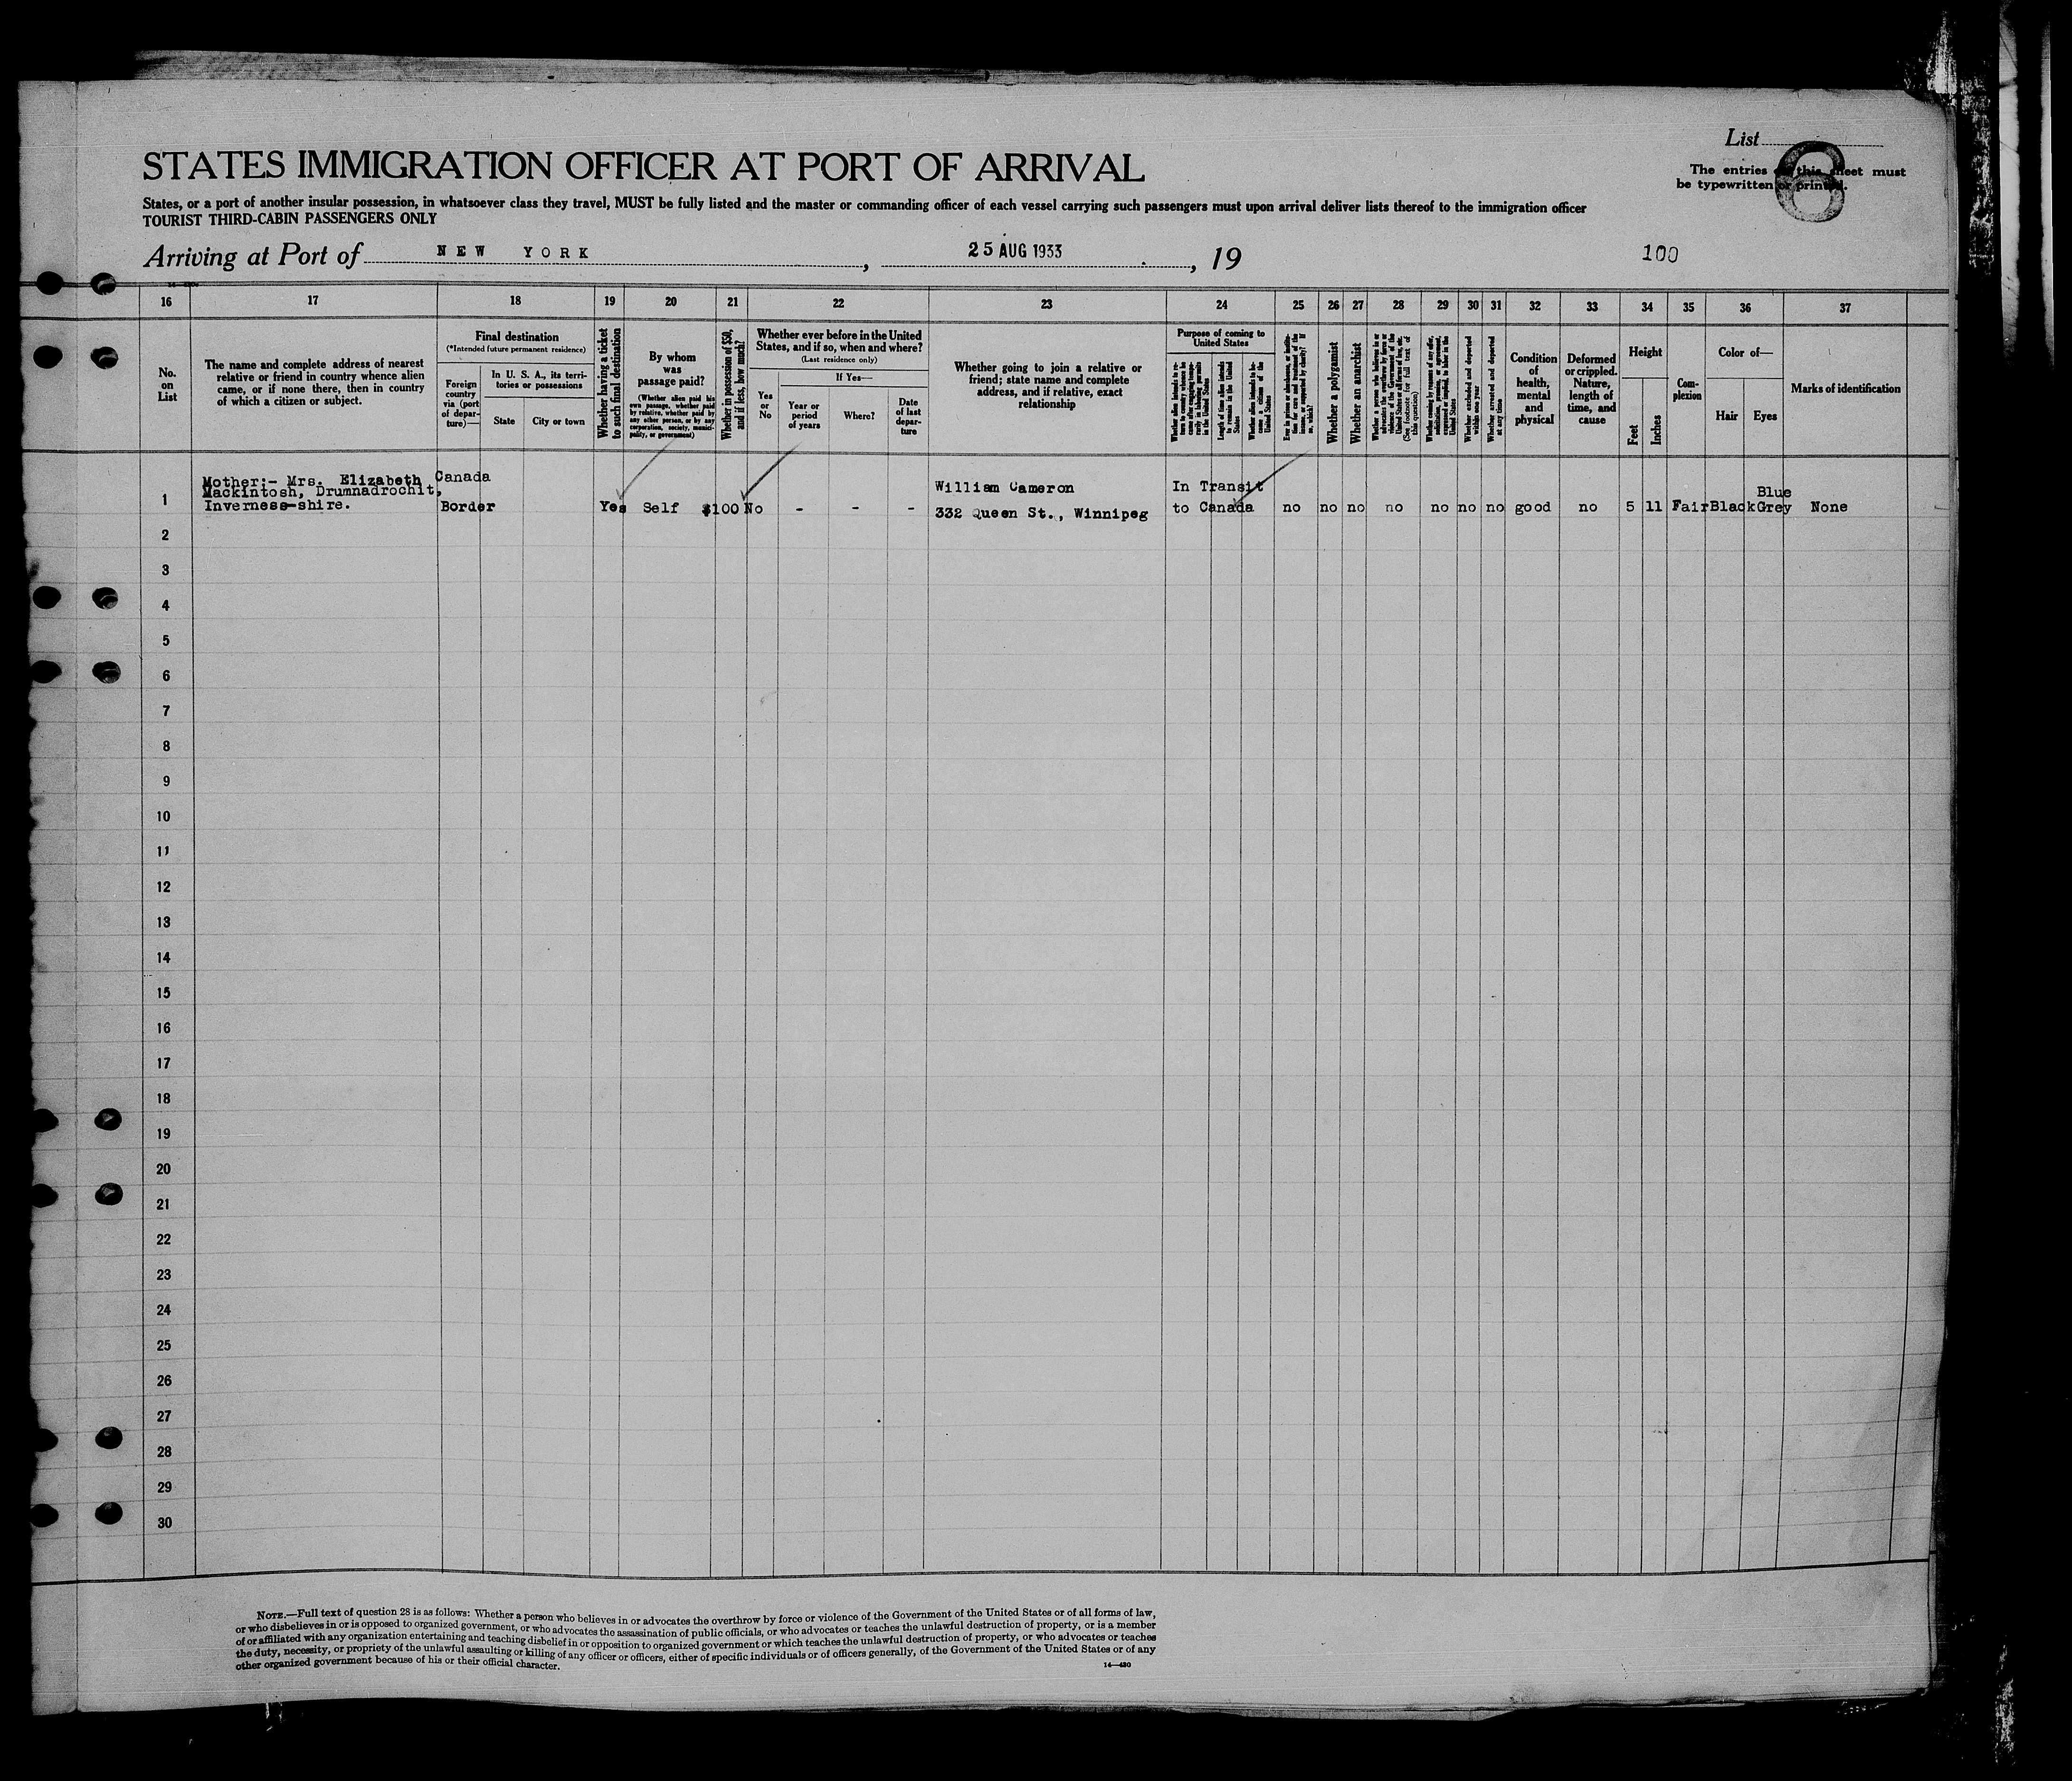 List
8
The entries on this sheet must
be typewritten or printed.
STATES IMMIGRATION OFFICER AT PORT OF ARRIVAL
States, or a port of another insular possession, in whatsoever class they travel, MUST be fully listed and the master or commanding officer of each vessel carrying such passengers must upon arrival deliver lists thereof to the immigration officer
TOURIST THIRD-CABIN PASSENGERS ONLY
Arriving at Port of NEW YORK, 25 AUG 1933, 19
100
16 17 18 19 20 21 22 23 24 25 26 27 28 29 30 31 32 33 34 35 36 37
No.
on
List
The name and complete address of nearest
relative or friend in country whence alien
came, or if none there, then in country
of which a citizen or subject.
Final destination
(*Intended future permanent residence)
Foreign
country
via (port
of depar-
ture)—
In U. S. A., its terri-
tories or possessions
State
City or town
Whether having a ticket
to such final destination
By whom
was
passage paid?
(Whether alien paid his
own passage, whether paid
by relative, whether paid by
any other person, or by any
corporation, society, munici-
pality, or government)
Whether in possession of $50,
and if less, how much?
Whether ever before in the United
States, and if so, when and where?
(Last residence only)
Yes
or
No
If Yes—
Year or
period
of years
Where?
Date
of last
depar-
ture
Whether going to join a relative or
friend; state name and complete
address, and if relative, exact
relationship
Purpose of coming to
United States
Whether alien intends to re-
turn to country whence he
came after engaging tempo-
rarily in laboring pursuits
in the United States
Length of time alien intends
to remain in the United
States
Whether alien intends to be-
come a citizen of the
United States
Whether a polygamist
Whether an anarchist
(See footnote for full text of
this question)
Whether excluded and deported
within one year
Whether arrested and deported
at any time
Condition
of
health,
mental
and
physical
Deformed
or crippled.
Nature,
length of
time, and
cause
Height
Feet
Inches
Com-
plexion
Color of—
Hair
Eyes
Marks of identification
Mother:- Mrs. Elizabeth Canada
Mackintosh, Drumnadrochit,
William Cameron In Transit Blue
1 Inverness-shire. Border Yes Self $100 No - - - 332 Queen St., Winnipeg to Canada no no no no no no no good no 5 11 Fair Black Grey None
2
3
4
5
6
7
8
9
10
11
12
13
14
15
16
17
18
19
20
21
22
23
24
25
26
27
28
29
30
NOTE.—Full text of question 28 is as follows: Whether a person who believes in or advocates the overthrow by force or violence of the Government of the United States or of all forms of law,
or who disbelieves in or is opposed to organized government, or who advocates the assassination of public officials, or who advocates or teaches the unlawful destruction of property, or is a member
of or affiliated with any organization entertaining and teaching disbelief in or opposition to organized government or which teaches the unlawful destruction of property, or who advocates or teaches
the duty, necessity, or propriety of the unlawful assaulting or killing of any officer or officers, either of specific individuals or of officers generally, of the Government of the United States or of any
other organized government because of his or their official character.
14—430